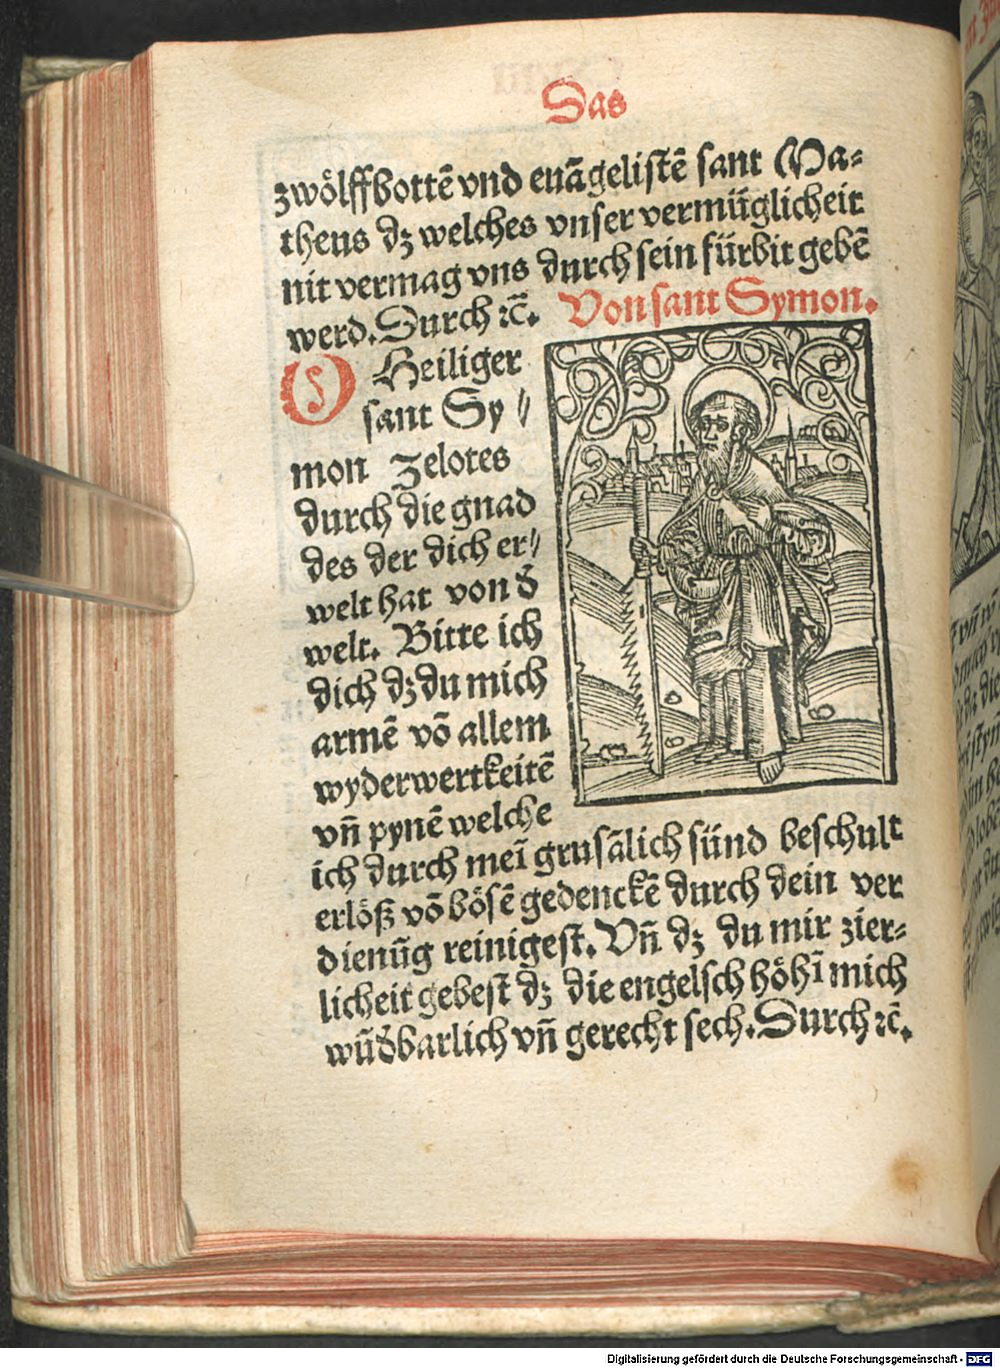 Das
zwölffbottē vnd euāgelistē sant Ma⸗
theus dz welches vnser vermüglicheit
nit vermag vns durch sein fürbit gebē
werd. Durch ⁊c̄. Von sant Symon.
O Heiliger
sant Sy⸗
mon Zelotes
durch die gnad
des der dich er⸗
welt hat von d̕
welt. Bitte ich
dich dz du mich
armē vō allem
wyderwertkeitē
vn̄ pynē welche
ich durch meī grusālich sünd beschult
erlöß vō bösē gedenckē durch dein ver
dienūg reinigest. Vn̄ dz du mir zier⸗
licheit gebest dz die engelsch höhī mich
wūd̕barlich vn̄ gerecht sech. Durch ⁊c̄.
Digitalisierung gefördert durch die Deutsche Forschungsgemeinschaft - DFG